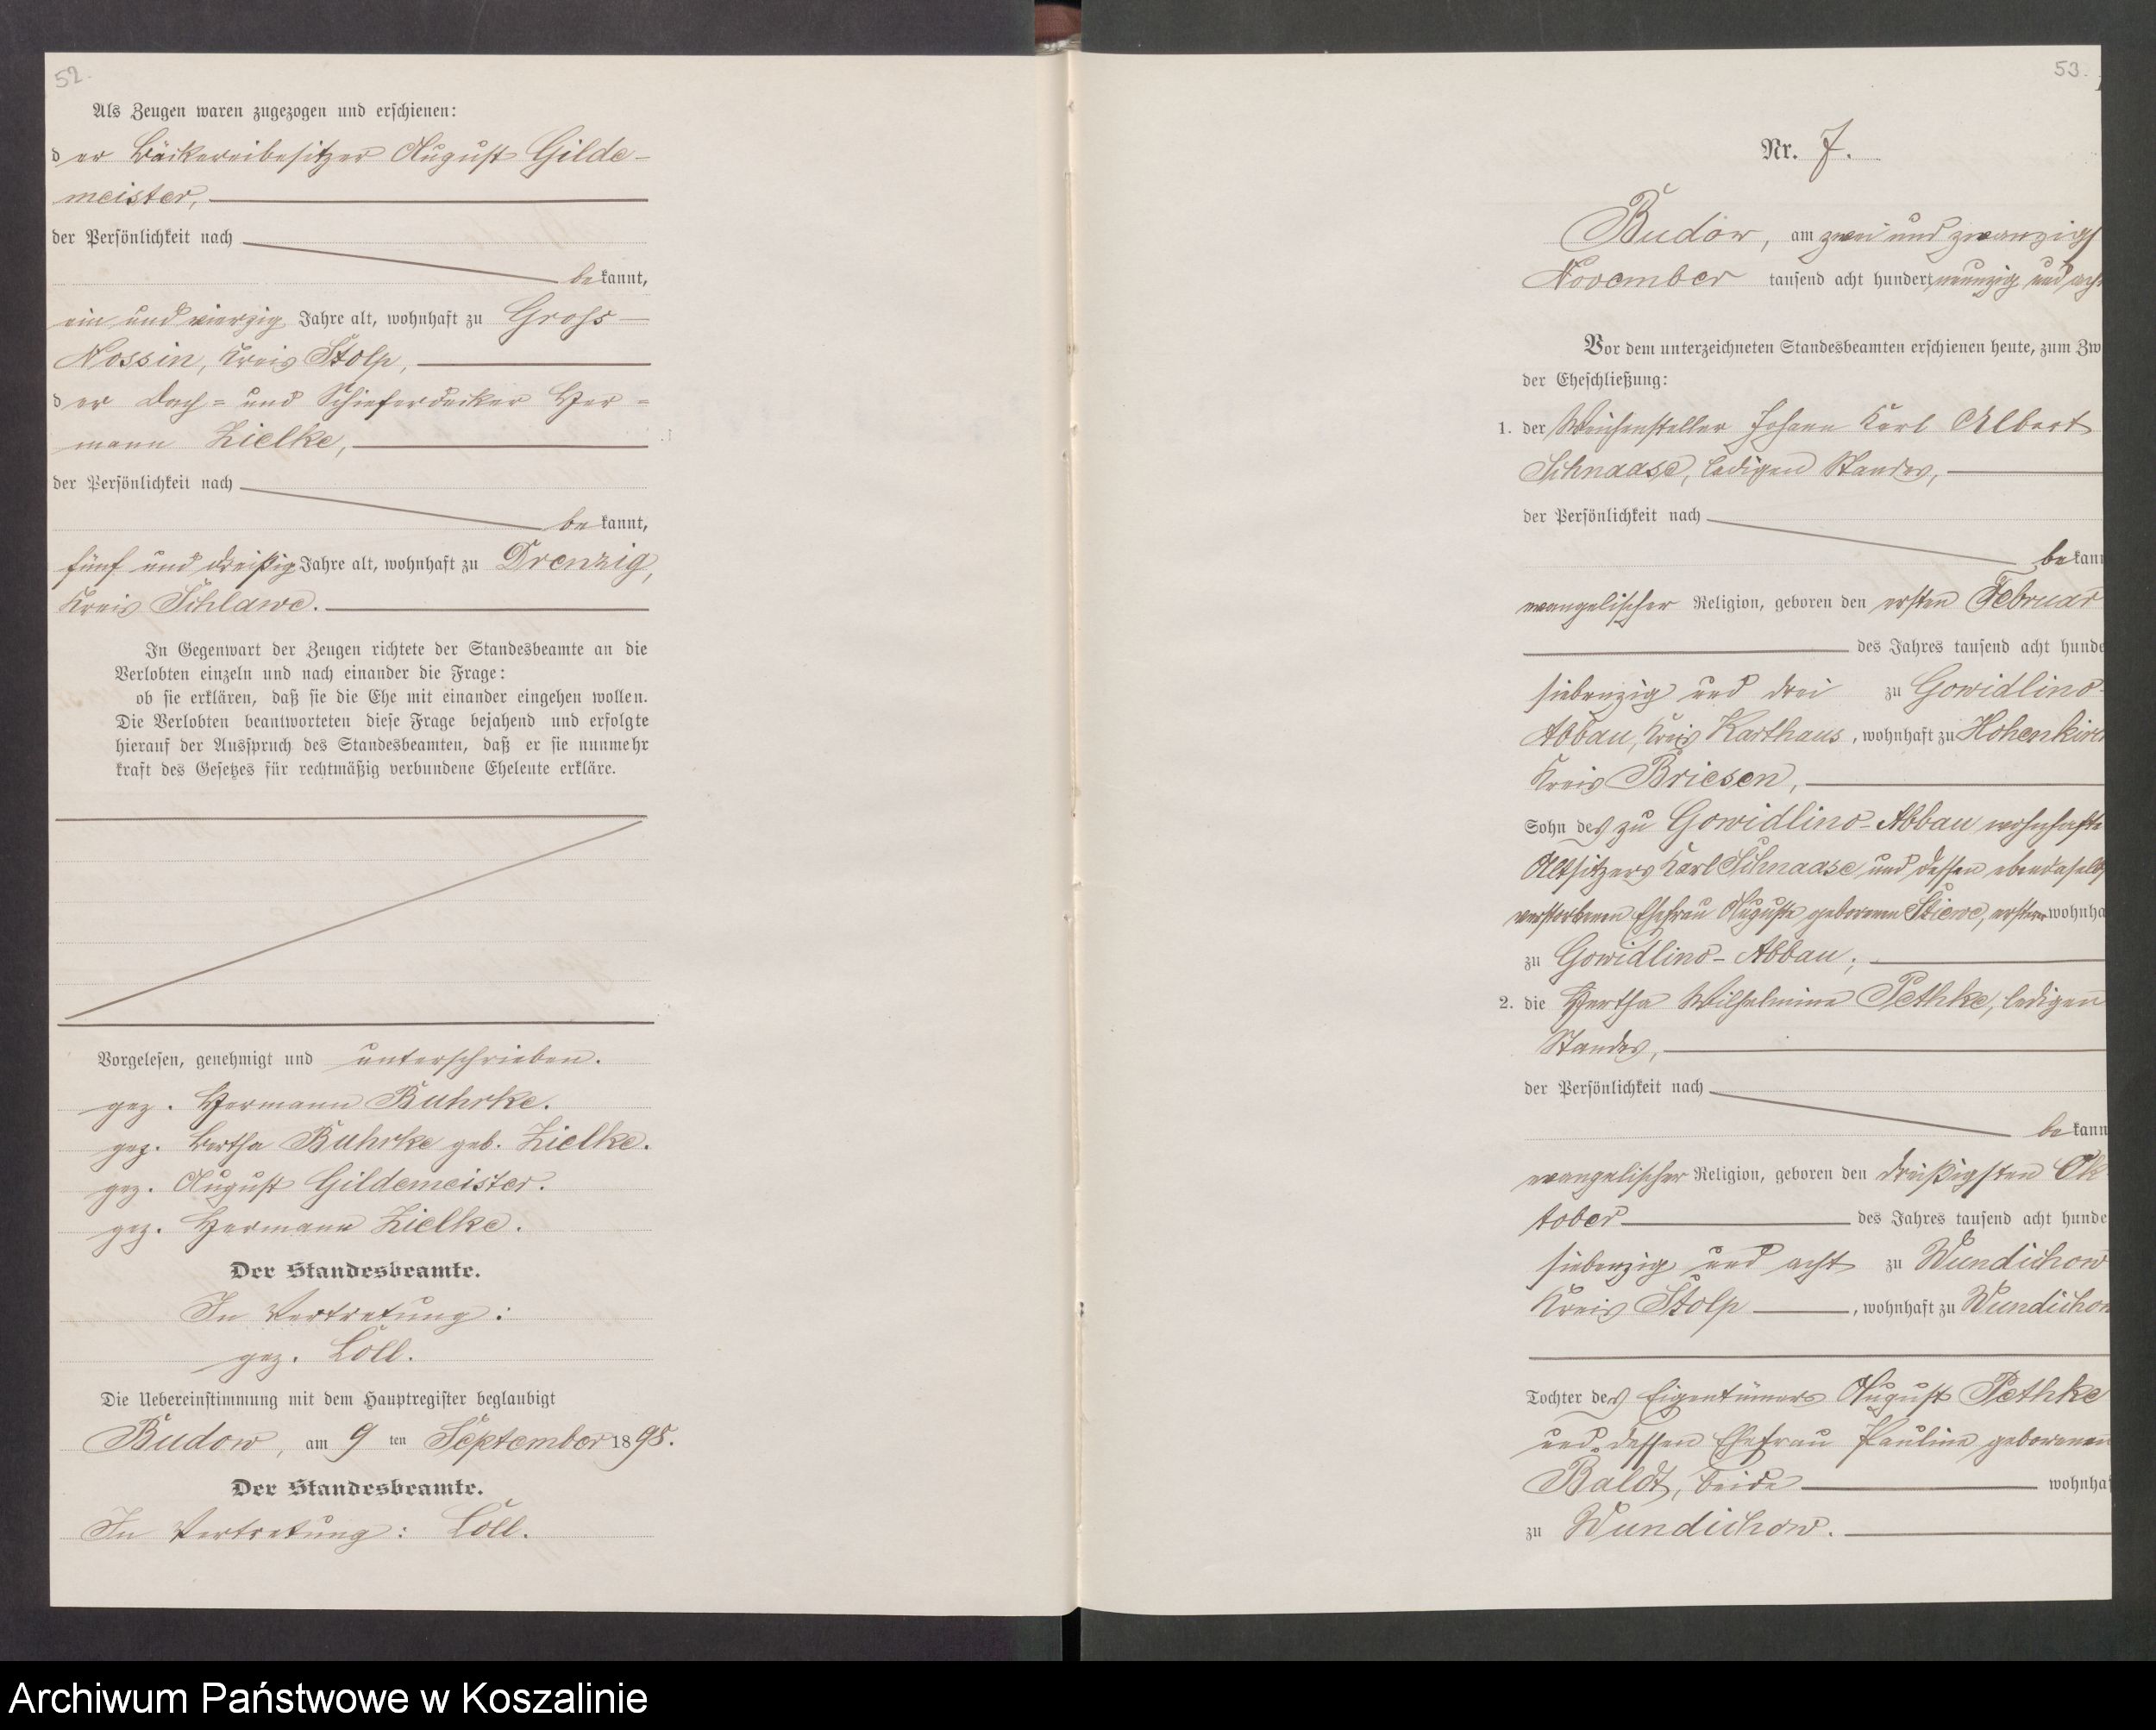 52.
Als Zeugen waren zugezogen und erschienen:
der Bäckereibesitzer August Gilde-
meister,
der Persönlichkeit nach
be kannt,
ein und vierzig Jahre alt, wohnhaft zu Gross-
Nossin, Kreis Stolp,
der Dach- und Schieferdecker Her-
mann Zielke,
der Persönlichkeit nach
be kannt,
fünf und dreißig Jahre alt, wohnhaft zu Drenzig,
Kreis Schlawe.
In Gegenwart der Zeugen richtete der Standesbeamte an die
Verlobten einzeln und nach einander die Frage:
ob sie erklären, daß sie die Ehe mit einander eingehen wollen.
Die Verlobten beantworteten diese Frage bejahend und erfolgte
hierauf der Ausspruch des Standesbeamten, daß er sie nunmehr
kraft des Gesetzes für rechtmäßig verbundene Eheleute erkläre.
Vorgelesen, genehmigt und unterschrieben.
gez. Hermann Buhrke.
gez. Bertha Buhrke geb. Zielke.
gez. August Gildemeister.
gez. Hermann Zielke.
Der Standesbeamte.
In Vertretung:
gez. Löll.
Die Uebereinstimmung mit dem Hauptregister beglaubigt
Budow, am 9 ten September 1898.
Der Standesbeamte.
In Vertretung: Löll.
53.
Nr. 7.
Budow, am zwei und zwanzigs
November tausend acht hundert neunzig und ach
Vor dem unterzeichneten Standesbeamten erschienen heute, zum Zw
der Eheschließung:
1. der Weichensteller Johann Karl Albert
Schnaase, ledigen Standes,
der Persönlichkeit nach
be kann
evangelischer Religion, geboren den ersten Februar
des Jahres tausend acht hunde
siebenzig und drei zu Gowidlino-
Abbau, Kreis Karthaus, wohnhaft zu Hohenkirch
Kreis Briesen,
Sohn des zu Gowidlino-Abbau wohnhafte
Altsitzers Karl Schnaase und dessen ebendaselbs
verstorbenen Ehefrau Auguste geborenen Stiewe, ersterer wohnha
zu Gowidlino-Abbau;
2. die Hertha Wilhelmine Pethke, ledigen
Standes,
der Persönlichkeit nach
be kann
evangelischer Religion, geboren den dreißigsten Ok
tober des Jahres tausend acht hunde
siebenzig und acht zu Wundichow
Kreis Stolp, wohnhaft zu Wundichow
Tochter des Eigentümers August Pethke
und dessen Ehefrau Pauline geborenen
Baldt, beide wohnhaf
zu Wundichow.
Archiwum Państwowe w Koszalinie